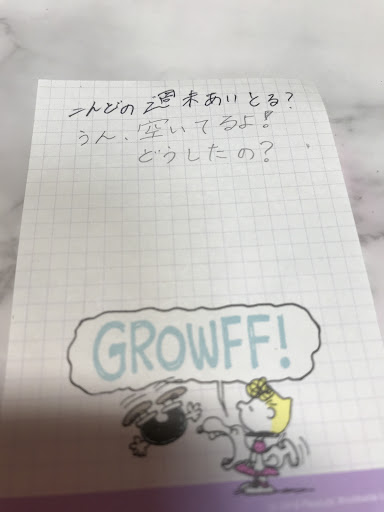 こんどの週末あいとる?
うん、空いてるよ!
どうしたの?
GROWFF!